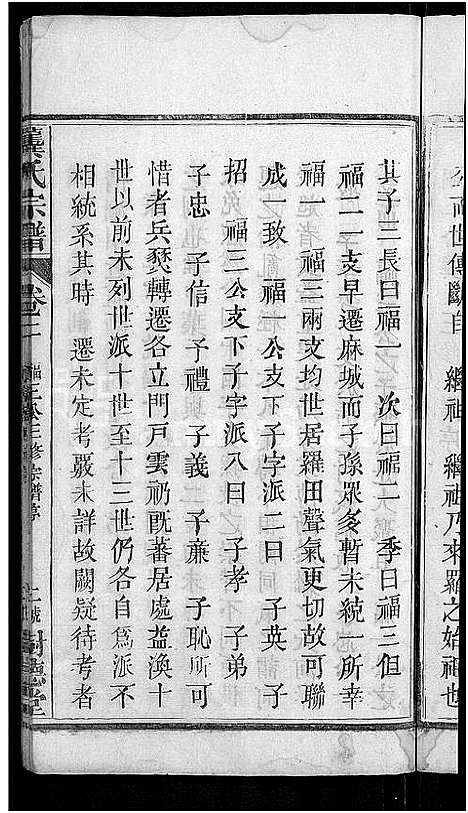 公而世傳斷自　繼祖　繼祖乃來羅之始祖也
其子三長曰福一　次曰福二　季曰福三但
福二一支早遷麻城而子孫眾多暫未統一所幸
福一　福三兩支均世居羅田聲氣更切故可聯
成一致　福一公支下子字派二曰　子英　子
招　福三公支下子字派八曰　子孝　子弟
子忠　子信　子禮　子義　子廉　子恥所可
惜者兵燹轉遷各立門戶雲礽既蕃居處益渙十
世以前未列世派十世至十三世仍各自為派不
相統系其時　剞遷未定考覈未詳故闕疑待考者
龔氏宗譜
卷二
福三公三修宗譜序
樹德堂